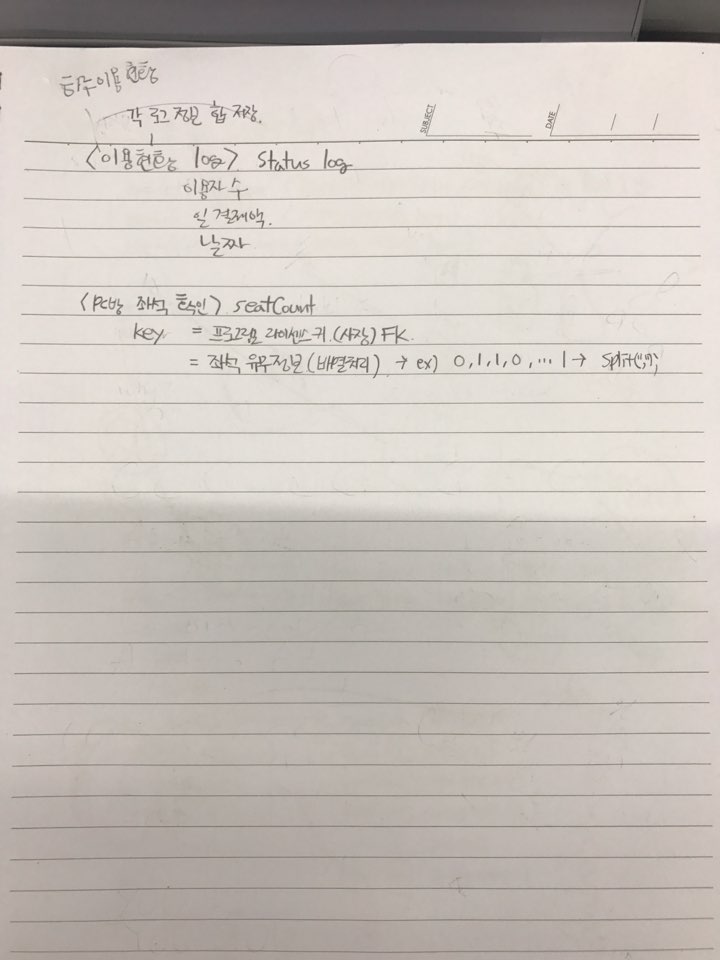 이용현황
각 로그 정보 합 저장.
SUBJECT
DATE / /
<이용현황 log> Status log
이용자 수
일 결제액.
날짜
<PC방 좌석 확인> seatCount
key = 프로그램 라이센스 키.(사장) FK.
= 좌석 유무정보(배열처리) → ex) 0,1,1,0, ... 1 → Split(",");